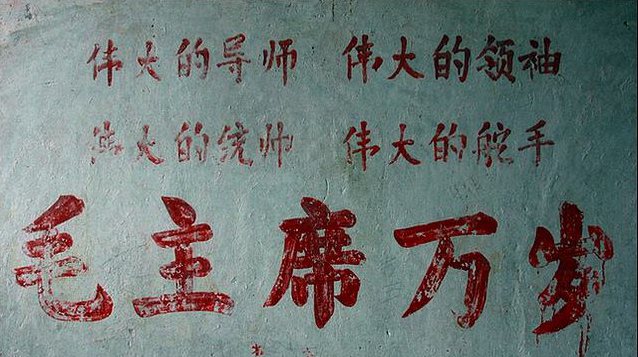 伟大的导师 伟大的领袖
伟大的统帅 伟大的舵手
毛主席万岁